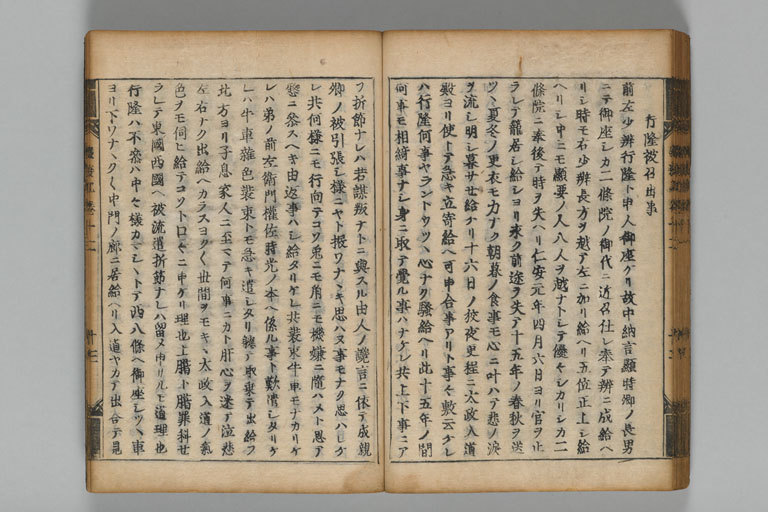 行隆被召出事
前左少辨行隆ト申人御座ケリ故中納言顯時卿ノ長男
ニテ御座シカ二條院ノ御代ニ近召仕レ奉テ辨ニ成給ヘ
リシ時モ右少辨長方ヲ越テ左ニ加リ給ヘリ五位正上シ給
ヘリシ中ニモ顯要ノ人八人ヲ越ナトシテ優々シカリシカ二
條院ニ奉後テ時ヲ失ヘリ仁安元年四月六日ヨリ官ヲ止
ラレテ籠居シ給シヨリ永ク前途ヲ失テ十五年ノ春秋ヲ送
ツヽ夏冬ノ更衣モ力ナク朝暮ノ食事モ心ニ叶ハテ悲ノ淚
ヲ流シ明シ暮サセ給ケリ十六日ノ狡夜更程ニ太政入道
殿ヨリ使トテ急キ立寄給ヘ可申合事アリト事々敷云ケレ
ハ行隆何事ヤラントウツヽ心ナク騷給ヘリ此十五年ノ間
何事モ相綺事ナシ身ニ取テ覺ル事ハナケレ共上下事ニア
フ折節ナレハ若謀叛ナトニ與スル由人ノ讒言ニ依テ成親
卿ノ被引張シ樣ニヤト投ワナヽキ思ハヌ事モナク思ハレケ
レ共何樣ニモ行向テコソ兎ニモ角ニモ機嫌ニ隨ハメト思テ
憖ニ參スヘキ由返事ハシ給タリケレ共裝束牛車モナカリケ
レハ弟ノ前左衛門權佐時光ノ本ヘ係ル事ト歎遣シタリケ
レハ牛車雜色裝束トモ急キ遣シタリ軈テ取乘テ出給フ
北方ヨリ子息家人ニ至マテ何事ニカト肝心ヲ迷テ泣悲
左右ナク出給ヘカラスヨクく世間ヲモキヽ太政入道ノ氣
色ヲモ伺ヒ給テコソト口々ニ申ケリ理也上臈下臈罪科セ
ラレテ東國西國ヘ被流遣折節ナレハ留メ申リルモ道理也
行隆ハ不參ハ中々樣カマシトテ西八條ヘ御座シツヽ車
ヨリ下リワナヽクく中門ノ廊ニ居給ヘリ入道ヤカテ出合テ見